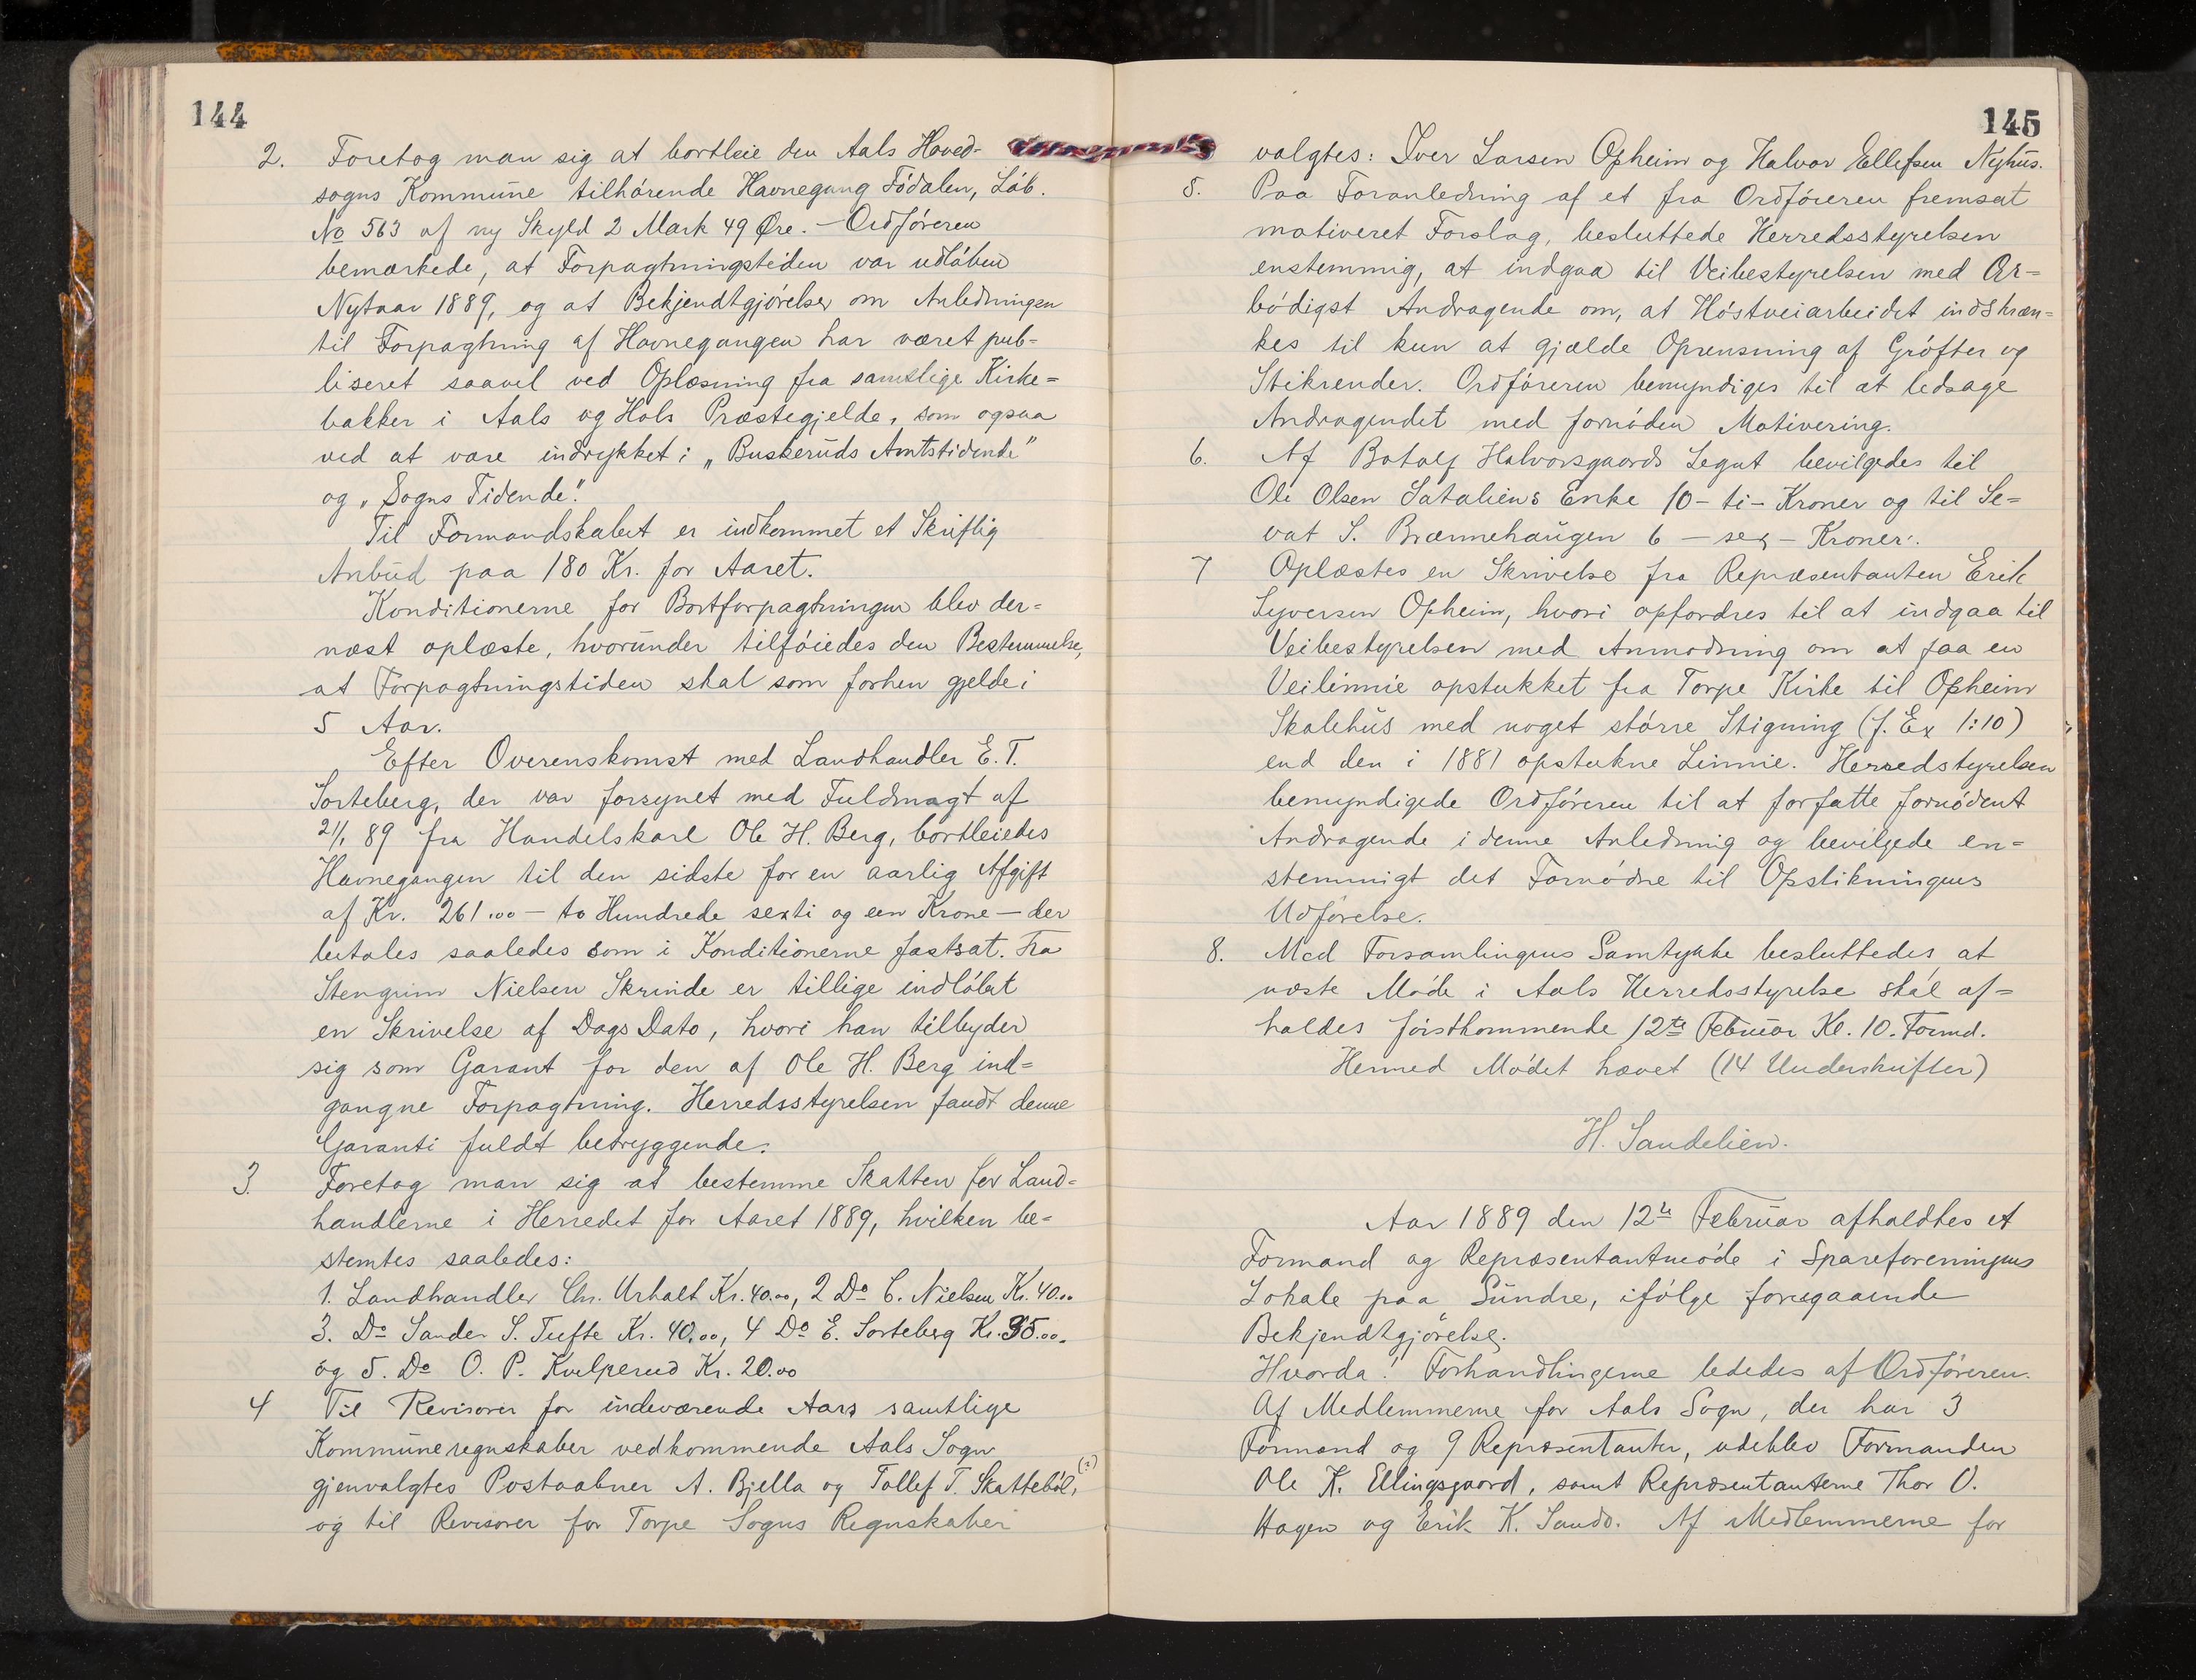 144
2. Foretog man sig at bortleie den Aals Hoved-
sogns Kommune tilhørende Havnegang Fødalen, Løb.
No 563 af ny Skyld 2 Mark 49 Øre. - Ordføreren
bemærkede, at Forpagtningstiden var udløben
Nytaar 1889, og at Bekjendtgjørelser om Anledningen
til Forpagtning af Havnegangen har været pub-
liseret saavel ved Oplæsning fra samtlige Kirke=
bakker i Aals og Hols Præstegjelde, som ogsaa
ved at være indrykket i „Buskeruds Amtstidende"
og „Sogns Tidende".
Til Formandskabet er indkommet et Skriftlig
Anbud paa 180 Kr. for Aaret.
Konditionerne for Bortforpagtningen blev der=
næst oplæste, hvorunder tilføiedes den Bestemmelse,
at Forpagtningstiden skal som forhen gjelde i
5 Aar.
Efter Overenskomst med Landhandler E. T.
Sorteberg, der var forsynet med Fuldmagt af
21/1 89 fra Handelskarl Ole H. Berg, bortleiedes
Havnegangen til den sidste for en aarlig Afgift
af Kr. 261.00 - to Hundrede sexti og een Krone - der
betales saaledes som i Konditionerne fastsat. Fra
Stengrim Nielsen Skrinde er tillige indløbet
en Skrivelse af Dags Dato, hvori han tilbyder
sig som Garant for den af Ole H. Berg ind=
gangne Forpagtning. Herredsstyrelsen fandt denne
Garanti fuldt betryggende.
3. Foretog man sig at bestemme Skatten for Land=
handlerne i Herredet for Aaret 1889, hvilken be=
stemtes saaledes:
1. Landhandler Chr. Urhalt Kr. 40.00, 2 Do C. Nielsen Kr. 40.00
3. Do Sander S. Tufte Kr. 40.00, 4 Do E. Sorteberg Kr. 35.00.
og 5. Do O. P. Kvelperud Kr. 20.00
4 Til Revisorer for indeværende Aars samtlige
Kommuneregnskaber vedkommende Aals Sogn
gjenvalgtes Postaabner A. Bjella og Tollef T. Skattebøl, (?)
og til Revisorer for Torpe Sogns Regnskaber
145
valgtes: Iver Larsen Opheim og Halvor Ellefsen Nyhus.
5. Paa Foranledning af et fra Ordføreren fremsat
motiveret Forslag, besluttede Herredsstyrelsen
enstemmig, at indgaa til Veibestyrelsen med Ær=
bødigst Andragende om, at Høstveiarbeidet indskræn=
kes til kun at gjælde Oprensning af Grøfter og
Stikrender. Ordføreren bemyndiges til at ledsage
Andragendet med fornøden Motivering.
6. Af Botolf Halvorsgaards Legat bevilgedes til
Ole Olsen Sataliens Enke 10 - ti - Kroner og til Se=
vat S. Brænnehaugen 6 - sex - Kroner.
7 Oplæstes en Skrivelse fra Repræsentanten Erik
Syversen Opheim, hvori opfordres til at indgaa til
Veibestyrelsen med Anmodning om at faa en
Veilinnie opstukket fra Torpe Kirke til Opheim
Skolehus med noget større Stigning (f. Ex 1:10)
end den i 1881 opstukne Linnie. Herredstyrelsen
bemyndigede Ordføreren til at forfatte fornødent
Andragende i denne Anledning og bevilgede en=
stemmigt det Fornødne til Opstikningens
Udførelse.
8. Med Forsamlingens Samtykke besluttedes, at
næste Møde i Aals Herredsstyrelse skal af=
holdes førstkommende 12te Februar Kl. 10. Formd.
Hermed Mødet hævet (14 Underskrifter)
H. Sandelien.
Aar 1889 den 12te Februar afholdtes et
Formand og Repræsentantmøde i Spareforeningens
Lokale paa Sundre, ifølge foregaaende
Bekjendtgjørelse.
Hvorda! Forhandlingerne lededes af Ordføreren.
Af Medlemmerne for Aals Sogn, der har 3
Formænd og 9 Repræsentanter, udeblev Formanden
Ole K. Ellingsgaard, samt Repræsentanterne Thor O.
Hagen og Erik K. Sando. Af Medlemmerne for